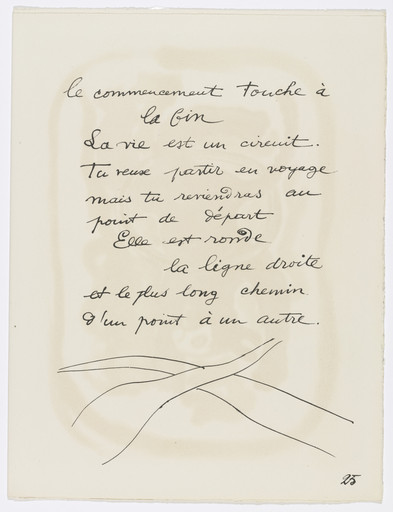 le commencement touche à
la fin
La vie est un circuit.
Tu veux partir en voyage
mais tu reviendras au
point de départ
Elle est ronde
la ligne droite
et le plus long chemin
d'un point à un autre.
25